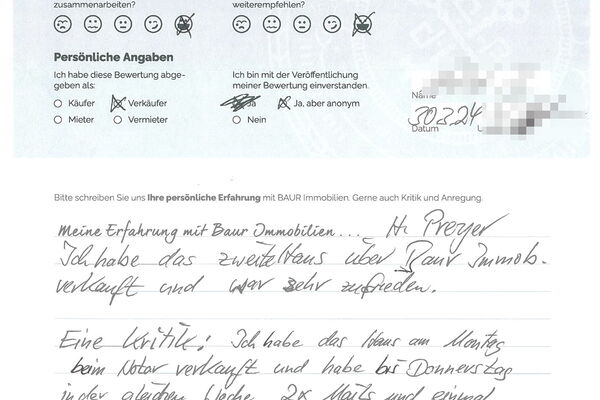 zusammenarbeiten?
weiterempfehlen?
Persönliche Angaben
Ich habe diese Bewertung abge-
geben als:
Käufer
Verkäufer
Mieter
Vermieter
Ich bin mit der Veröffentlichung
meiner Bewertung einverstanden.
Ja
Ja, aber anonym
Nein
Name
30.3.24
Datum
Bitte schreiben Sie uns Ihre persönliche Erfahrung mit BAUR Immobilien. Gerne auch Kritik und Anregung.
Meine Erfahrung mit Baur Immobilien... H. Preyer
Ich habe das zweite Haus über Baur Immob.
verkauft und war sehr zufrieden.
Eine Kritik: Ich habe das Haus am Montag
beim Notar verkauft und habe bis Donnerstag
in der gleichen Woche 2x Mails und einmal